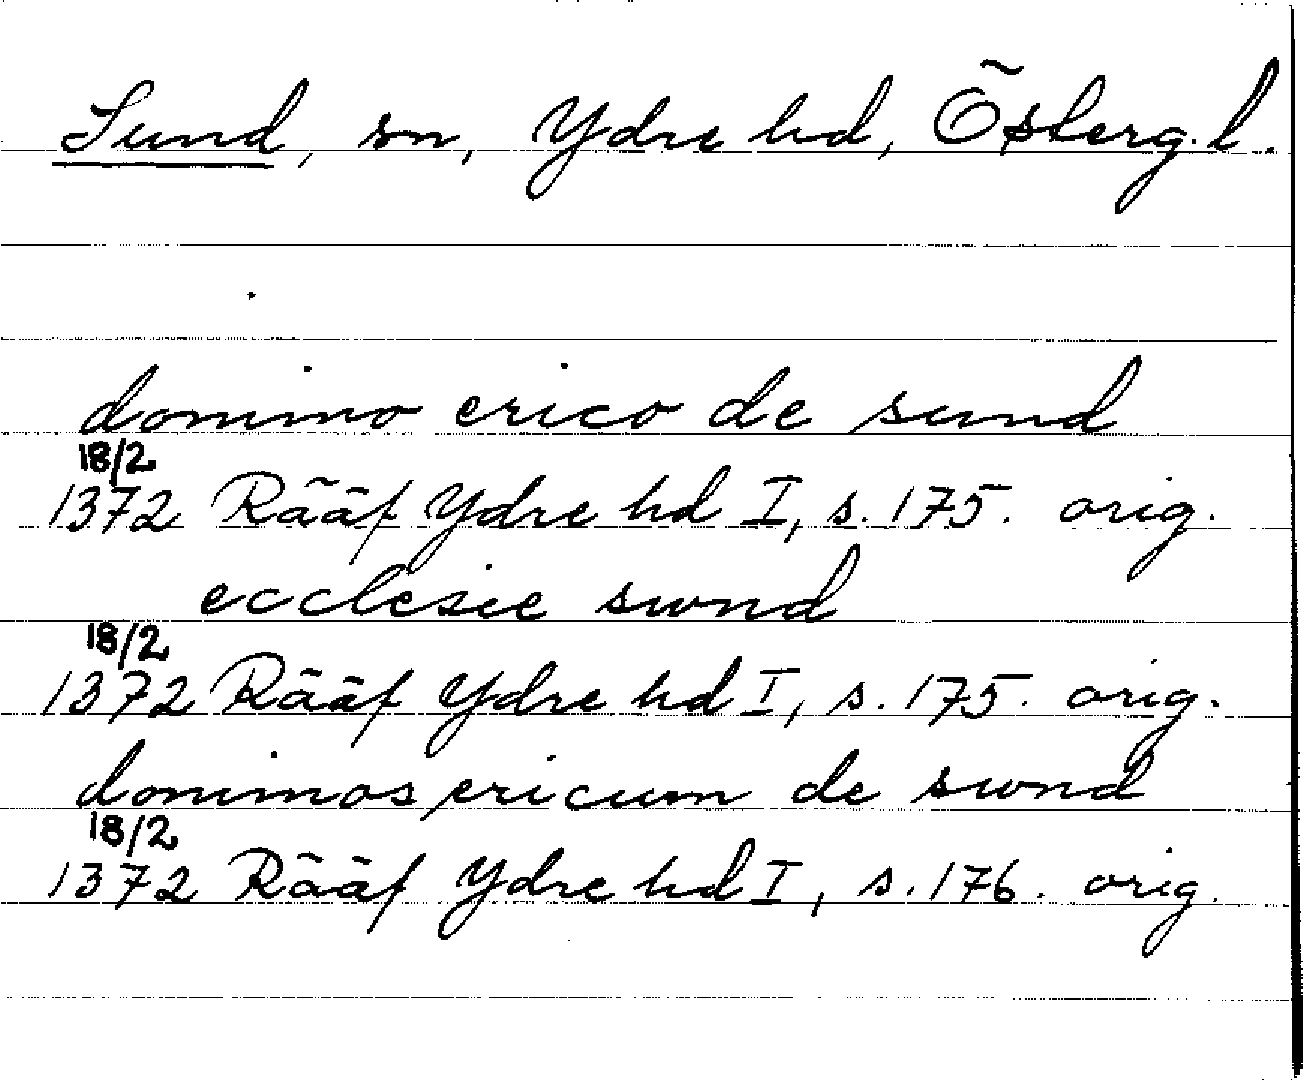 Sund, sn, Ydre hd, Österg. l.
domino erico de sund
18/2
1372 Rääf Ydre hd I, s. 175. orig.
ecclesie swnd
18/2
1372 Rääf Ydre hd I, s. 175. orig.
dominos ericum de swnd
18/2
1372 Rääf Ydre hd I, s. 176. orig.